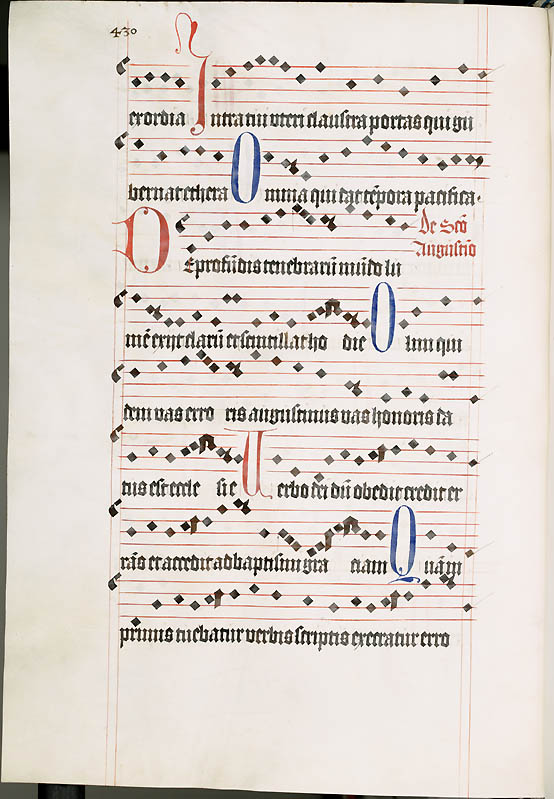 430
exordia Intra tui uteri claustra portas qui gu
bernat ethera Omnia qui dat tēpora pacifica.
De Scō
Augustīo
DE profūdis tenebrarū mūdo lu
mē exijt clarū et scintillat ho die Olim qui
dem vas erro ris augustinus vas honoris da
tus est eccle sie Uerbo dei dū obedit credit er
rās et accedit ad baptismi gra ciam Quām
primus tuebatur verbis scriptis execratur erro